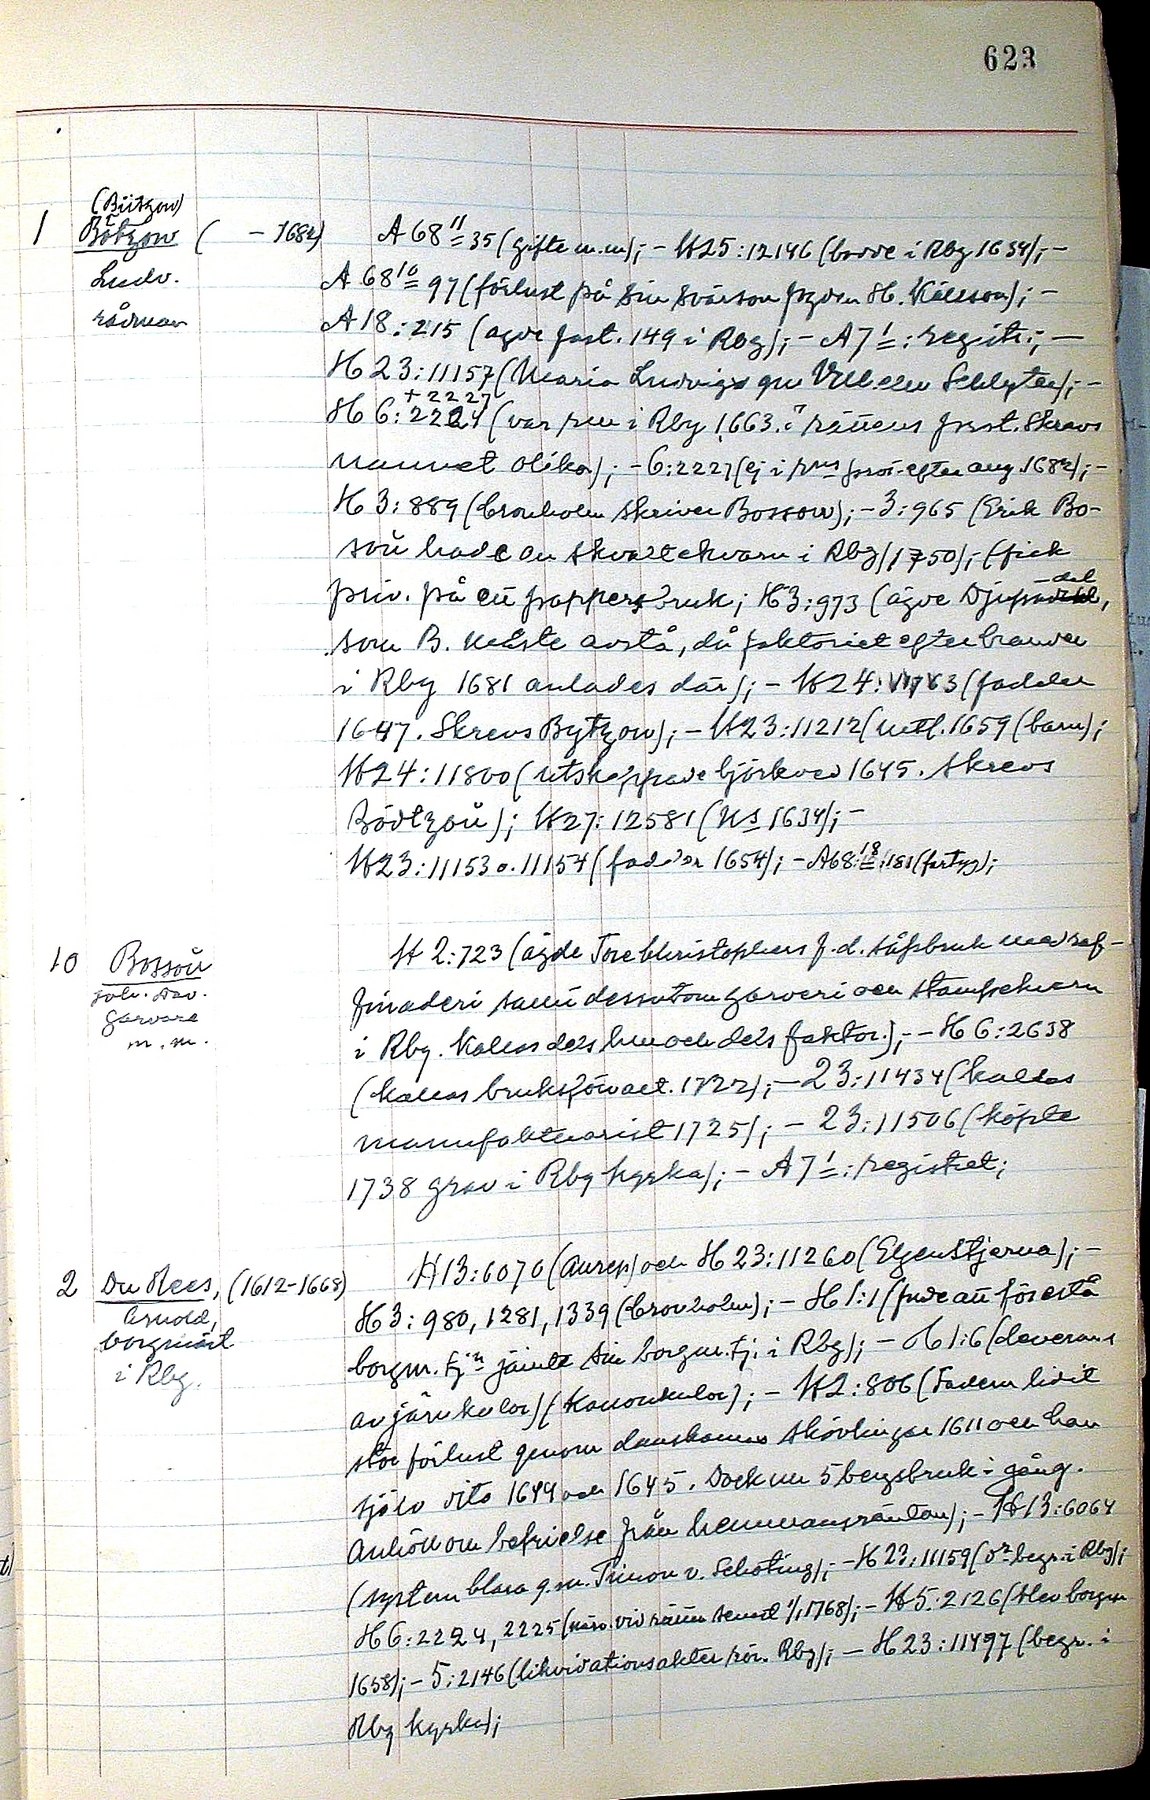 623
(Bützow)
1 Bötzow ( - 1682) A 68 11 35 (gifte m.m); - H25:12146 (borde i Rbg 1634); -
Ludv. A 68 10 97 (förlust på sin svärson H. Källsson); -
rådman A 18:215 (ägde fast. 149 i Rbg); - A 7 1: registr.; -
H 23:11157 (Maria Ludvigs Schlyter); -
+ 2227
H 6:2224 (var rm i Rby 1663. i rättens prot. Skrevs
namnet olika); - 6:2227 (ej i rns prot. efter aug. 1682); -
H 3:889 (Cronholm skriver Bossow); - 3:965 (Erik Bo-
soü hade en skvaltekvarn i Rbg 1750); (fick
priv. på ett pappersbruk; H3:973 (ägde Djupadal,
som B. måste avstå, då faktoriet efter branden
i Rby 1681 anlades där); - H24: (fadder
1647. Skrevs Bytzow); - H23:11212 (uttl. 1659 (barn);
H24:11800 (utskeppade björkved 1645. Skrevs
Bödtzoü); H27:12581 (Ns 1634); -
H23:11153 o. 11154 (fadder 1654); - A68:18:181 (fartyg);
10 Bossoü H 2:723 (ägde Tore Christophers f.d. såpbruk med raf-
Joh. Dav. finaderi samt dessutom garveri och stampekvarn
garvare i Rby. Kallas dels hm och dels faktor.); - H 6:2638
m.m. (kallas bruksförvalt. 1722); - 23:11434 (kallas
manufakturist 1725); - 23:11506 (köpte
1738 grav i Rby kyrka); - A 7 1: registret;
2 Du Rees, (1612-1668) H 13:6070 (Anrep) och H 23:11260 (Elgenstjerna); -
Arnold, H 3:980, 1281, 1339 (Cronholm); - H 1:1 (fick att förestå
borgmäst. borgm. tjn jämte sin borgm. tj. i Rbg); - H 1:6 (leverans
i Rbg. av järnkulor) (Kanonkulor); - H 2:806 (Fadern lidit
stor förlust genom danskarnas skövlingar 1611 och han
själv dito 1644 och 1645. Dock nu 5 bergsbruk i gång.
Anhöll om befrielse från hemmansräntan); - H 13:6064
(systern Clara g.m. Timon v. Schoting); - H 23:11159 (dr begr. i Rbg);
H 6:2224, 2225 (närv. vid rätten senast 1/1 1768); - H 5:2126 (blev borgm
1658); - 5:2146 (likvidationsakter rör. Rbg); - H 23:11497 (begr. i
Rby kyrka);